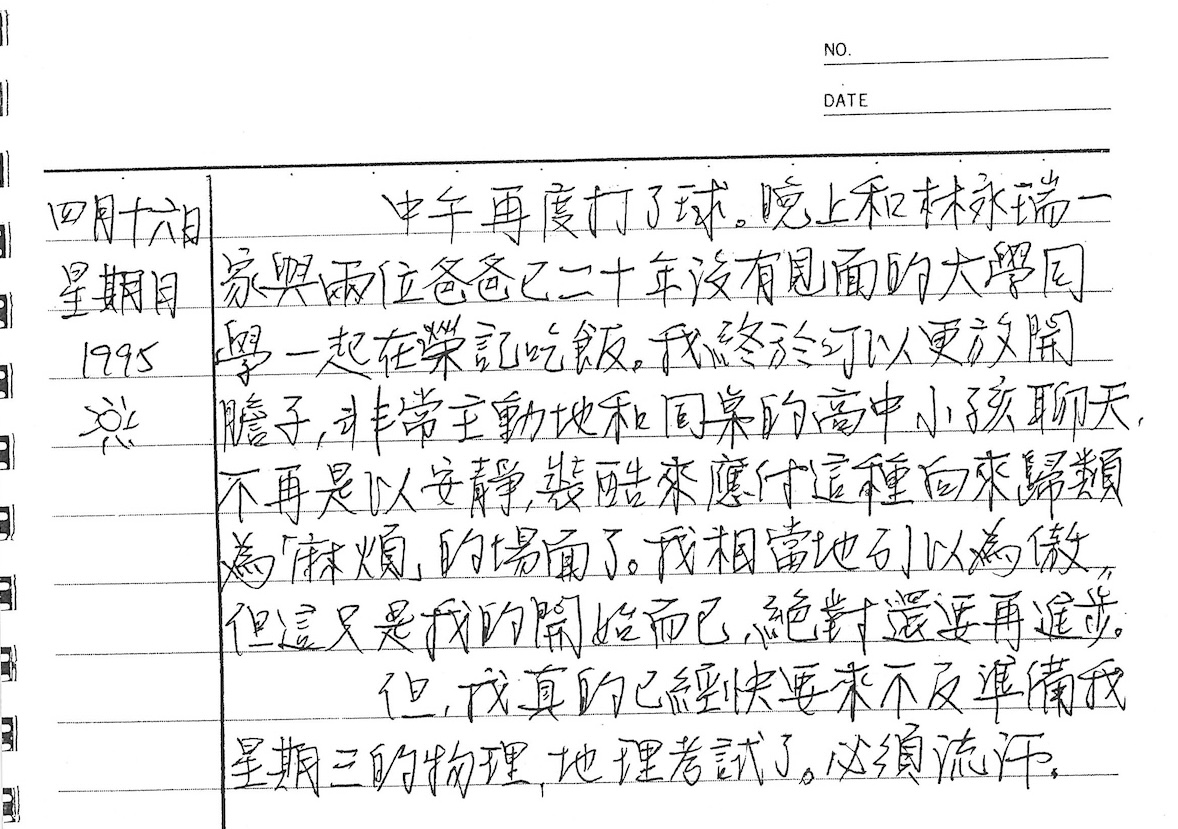 NO.
DATE
四月十六日
星期日
1995
中午再度打了球。晚上和林永瑞一
家與兩位爸爸已二十年沒有見面的大學同
學一起在榮記吃飯。我終於可以更放開
膽子,非常主動地和同桌的高中小孩聊天,
不再是以安靜,裝酷來應付這種向來歸類
為「麻煩」的場面了。我相當地引以為傲,
但這只是我的開始而已,絕對還要再進步。
但,我真的已經快要來不及準備我
星期三的物理,地理考試了。必須流汗。